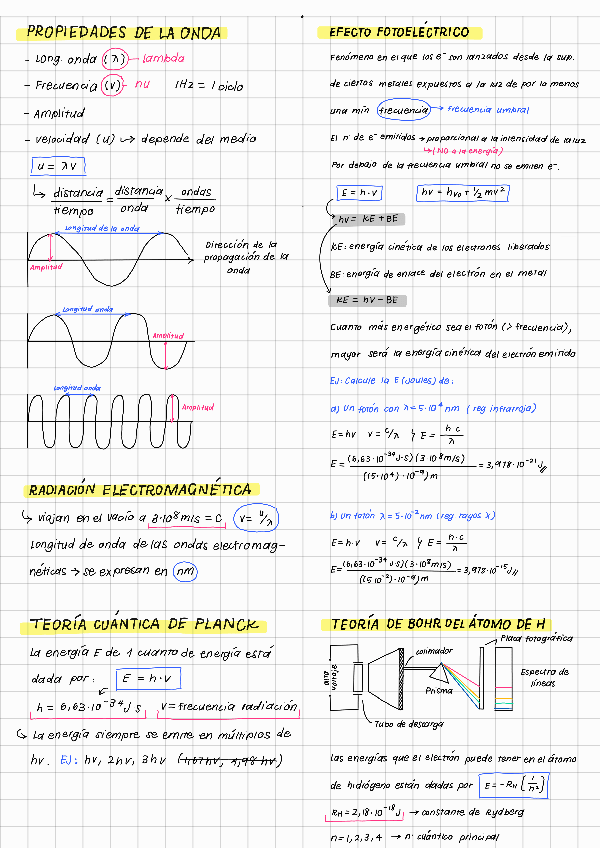 PROPIEDADES DE LA ONDA
- Long. onda (λ) → lambda
- Frecuencia (ν) → nu 1Hz = 1 ciclo
- Amplitud
- Velocidad (u) ↪ depende del medio
u = λν
↳ distancia/tiempo = distancia/onda × ondas/tiempo
Longitud de la onda
Amplitud
Dirección de la
propagación de la
onda
Longitud onda
Amplitud
Longitud onda
Amplitud
RADIACIÓN ELECTROMAGNÉTICA
↪ viajan en el vacío a 3·10⁸ m/s = C ν = u/λ
Longitud de onda de las ondas electromag-
néticas → se expresan en nm
TEORÍA CUÁNTICA DE PLANCK
La energía E de 1 cuanto de energía está
dada por: E = h·ν
h = 6,63·10⁻³⁴ J s ν = frecuencia radiación
↪ La energía siempre se emite en múltiplos de
hν. EJ: hν, 2hν, 3hν (1,67hν, 4,98 hν)
EFECTO FOTOELÉCTRICO
Fenómeno en el que los e⁻ son lanzados desde la sup.
de ciertos metales expuestos a la luz de por lo menos
una mín frecuencia → frecuencia umbral
El n· de e⁻ emitidos → proporcional a la intensidad de la luz
↪ (NO a la energía)
Por debajo de la frecuencia umbral no se emiten e⁻.
E = h·ν hν = hν₀ + ½ mv²
hν = KE + BE
KE: energía cinética de los electrones liberados
BE: energía de enlace del electrón en el metal
KE = hν - BE
Cuanto más energético sea el fotón (> frecuencia),
mayor será la energía cinética del electrón emitido
EJ: Calcule la E (joules) de:
a) Un fotón con λ = 5·10⁴ nm (reg infrarroja)
E = hν ν = c/λ y E = h·c/λ
E = (6,63·10⁻³⁴ J·s)(3·10⁸ m/s)/((5·10⁴)·10⁻⁹) m = 3,978·10⁻²¹ J//
b) Un fotón λ = 5·10⁻² nm (reg rayos X)
E = h·ν ν = c/λ y E = h·c/λ
E = (6,63·10⁻³⁴ J·s)(3·10⁸ m/s)/((5·10⁻²)·10⁻⁹) m = 3,978·10⁻¹⁵ J//
TEORÍA DE BOHR DEL ÁTOMO DE H
Placa fotográfica
colimador
alto voltaje
Prisma
Espectro de
líneas
Tubo de descarga
Las energías que el electrón puede tener en el átomo
de hidrógeno están dadas por E = -R_H (1/n²)
R_H = 2,18·10⁻¹⁸ J → constante de Rydberg
n = 1, 2, 3, 4 → n· cuántico principal